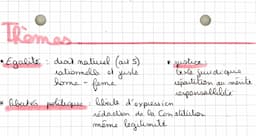 Thèmes
• Égalité : droit naturel (art 5)
rationnelle et juste
home - feme
• justice :
texte juridique
répartition au mérite
responsabilité
• libertés politique : liberté d'expression
rédaction de la Constitution
même légitimité